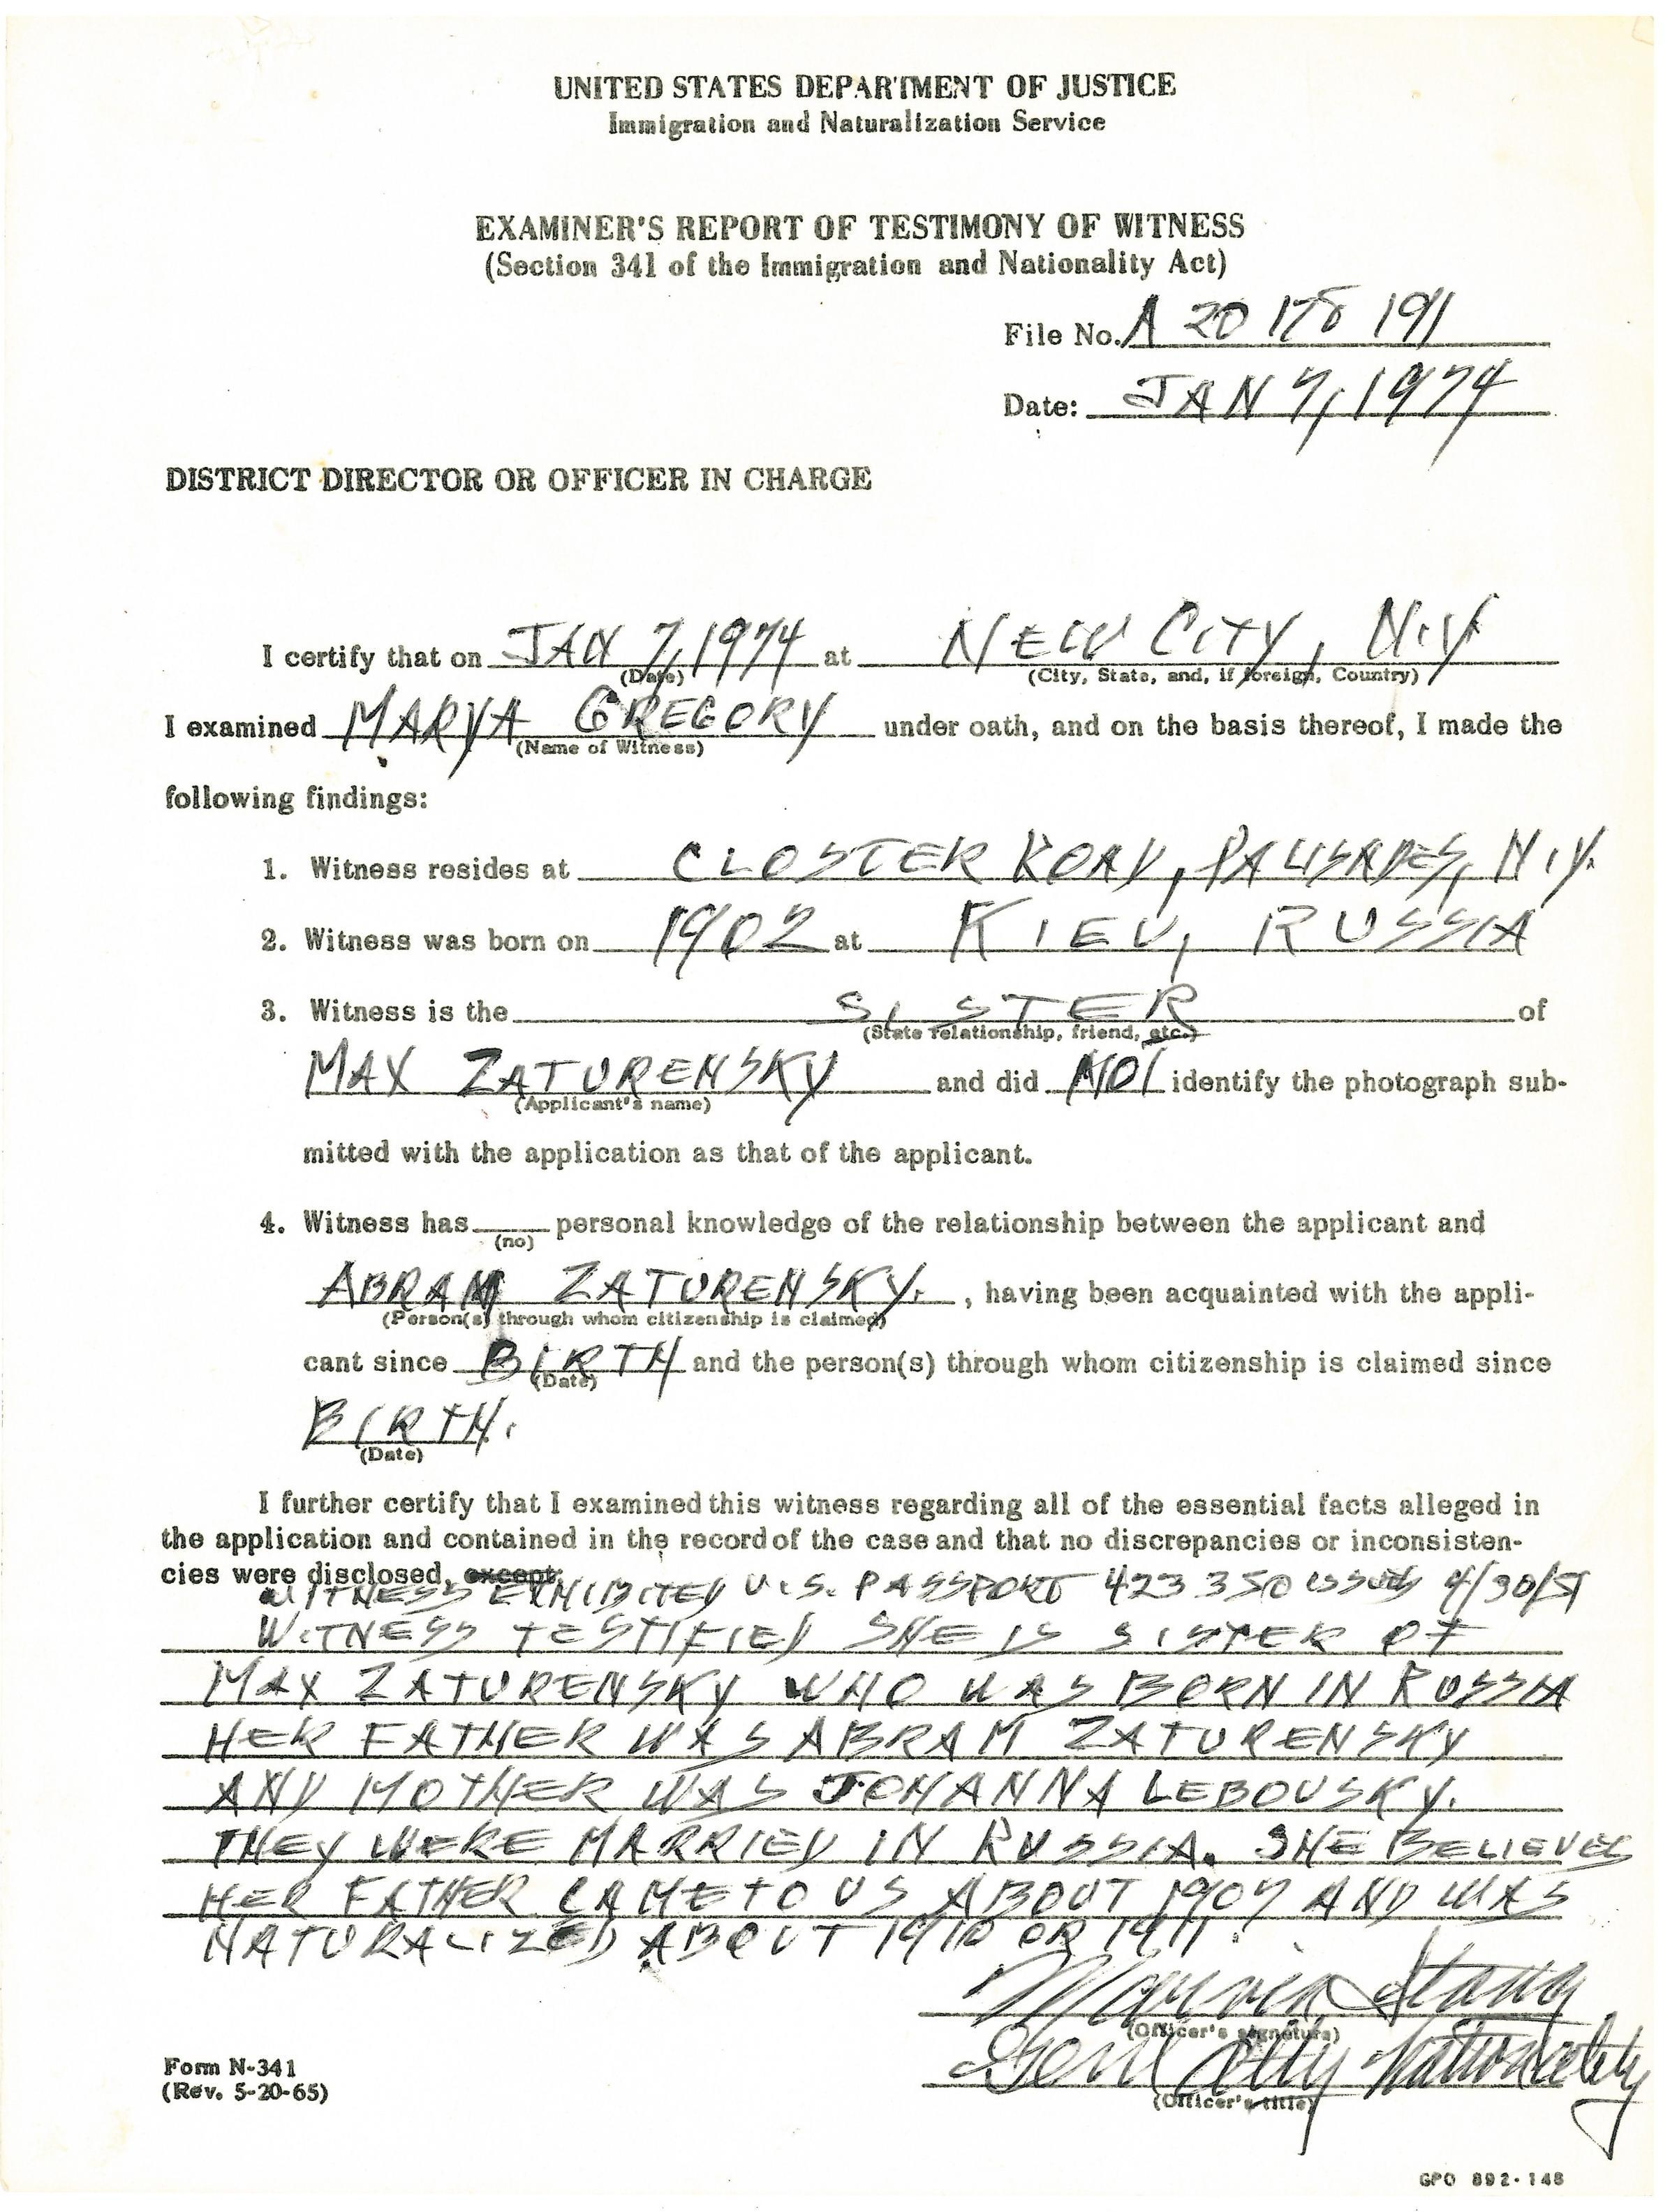 UNITED STATES DEPARTMENT OF JUSTICE
Immigration and Naturalization Service
EXAMINER'S REPORT OF TESTIMONY OF WITNESS
(Section 341 of the Immigration and Nationality Act)
File No. A 20 178 191
Date: JAN 7, 1974
DISTRICT DIRECTOR OR OFFICER IN CHARGE
I certify that on JAN 7, 1974 at NEW CITY, N.Y
(Date) (City, State, and, if foreign, Country)
I examined MARYA GREGORY under oath, and on the basis thereof, I made the
(Name of Witness)
following findings:
1. Witness resides at CLOSTER ROAD, PALISADES, N.Y.
2. Witness was born on 1902 at KIEV, RUSSIA
3. Witness is the SISTER of
(State relationship, friend, etc.)
MAX ZATURENSKY and did NOT identify the photograph sub-
(Applicant's name)
mitted with the application as that of the applicant.
4. Witness has personal knowledge of the relationship between the applicant and
(no)
ABRAM ZATURENSKY. , having been acquainted with the appli-
(Person(s) through whom citizenship is claimed)
cant since BIRTH and the person(s) through whom citizenship is claimed since
(Date)
BIRTH.
(Date)
I further certify that I examined this witness regarding all of the essential facts alleged in
the application and contained in the record of the case and that no discrepancies or inconsisten-
cies were disclosed, except:
WITNESS EXHIBITED U.S. PASSPORT 423350 ISSUED 4/30/51
WITNESS TESTIFIED SHE IS SISTER OF
MAX ZATURENSKY WHO WAS BORN IN RUSSIA
HER FATHER WAS ABRAM ZATURENSKY
AND MOTHER WAS JOHANNA LEBOUSKY.
THEY WERE MARRIED IN RUSSIA. SHE BELIEVES
HER FATHER CAME TO US ABOUT 1907 AND WAS
NATURALIZED ABOUT 1910 OR 1911.
(Officer's signature)
Genl Atty Nationality
(Officer's title)
Form N-341
(Rev. 5-20-65)
GPO 892-148